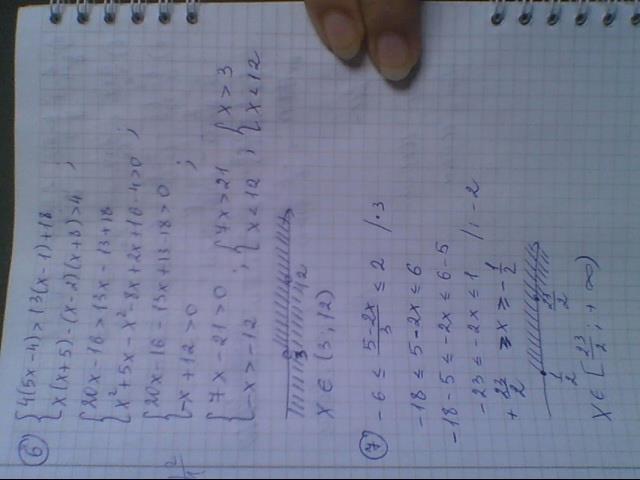 6
{4(5x-4)>13(x-1)+18
{x(x+5)-(x-2)(x+8)>4 ;
{20x-16>13x-13+18
{x²+5x-x²-8x+2x+16-4>0 ;
{20x-16-13x+13-18>0
{-x+12>0 ;
{7x-21>0 ; {7x>21 ; {x>3
{-x>-12 {x<12 {x<12
3 12
x ∈ (3; 12)
7
-6 ≤ (5-2x)/3 ≤ 2 /·3
-18 ≤ 5-2x ≤ 6
-18-5 ≤ -2x ≤ 6-5
-23 ≤ -2x ≤ 1 /: -2
+ 23/2 ≥ x ≥ - 1/2
1/2 23/2
x ∈ [23/2 ; +∞)